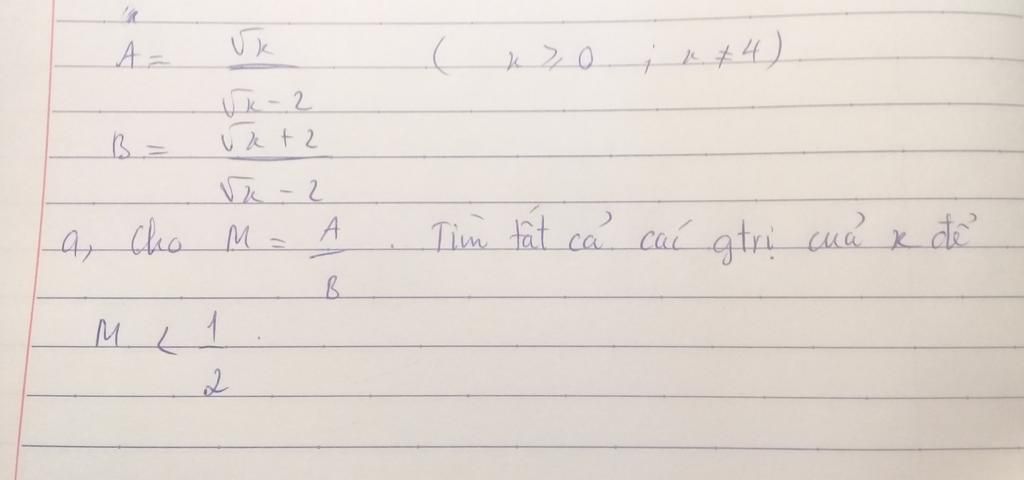 A = √x / √x - 2 ( x ≥ 0 ; x ≠ 4 )
B = √x + 2 / √x - 2
a, Cho M = A / B . Tìm tất cả các gtrị cuả x để
M < 1 / 2 .